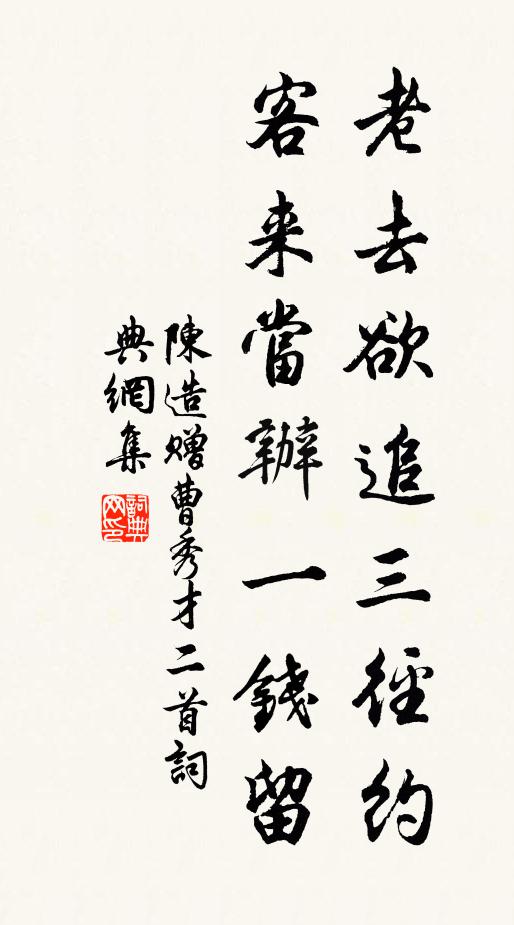 老去欲追三徑約
客来當辦一錢留
陳造贈曹秀才二首詞
典網集
詞典
网印